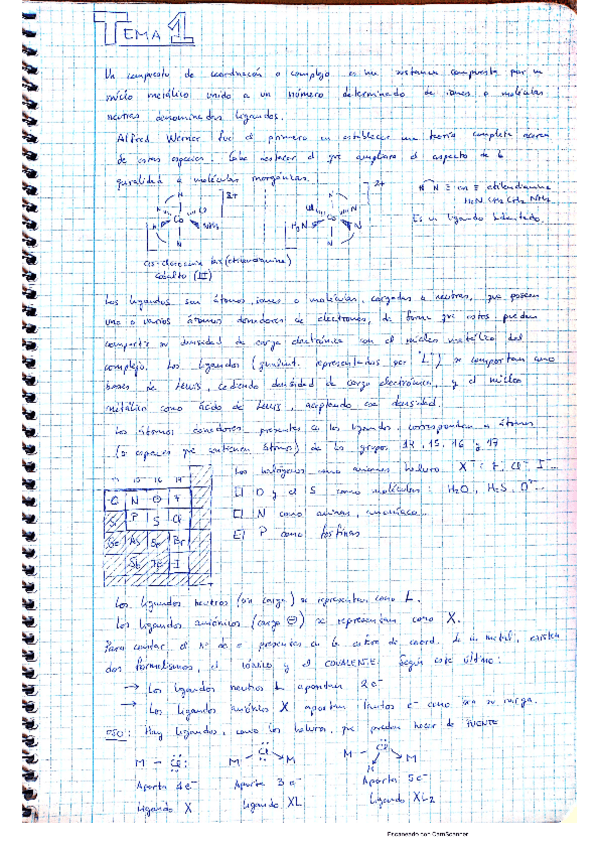 TEMA 1
Un compuesto de coordinación o complejo es una sustancia compuesta por un
núcleo metálico unido a un número determinado de iones o moléculas
neutras denominadas ligandos.
Alfred Werner fue el primero en establecer una teoría completa acerca
de estas especies. Cabe destacar el que ampliara el aspecto de la
quiralidad a moléculas inorgánicas.
N N ≡ en ≡ etilendiamina
H2N CH2 CH2 NH2
Es un ligando bidentado.
2+
Co
NH3
2+
H3N
Co
cobalto (II)
Los ligandos son átomos, iones o moléculas, cargadas o neutras, que poseen
uno o varios átomos donadores de electrones, de forma que estos pueden
compartir su densidad de carga electrónica con el núcleo metálico del
complejo. Los ligandos representados por "L") se comportan como
bases de Lewis, cediendo densidad de carga electrónica, y el núcleo
metálico como ácido de Lewis, aceptando esa densidad.
Los átomos donadores presentes en los ligandos, corresponden a átomos
(o especies que contienen átomos) de los grupos 14, 15, 16 y 17
14 15 16 17
C N O F
Si P S Cl
Ge As Se Br
Sb Te I
Los halógenos como aniones haluro X⁻: F⁻, Cl⁻, I⁻...
El O y el S como moléculas: H2O, H2S, O²⁻...
El N como aminas, amoníaco...
El P como fosfinas
Los ligandos neutros (sin carga) se representan como L.
Los ligandos aniónicos (carga ⊖) se representan como X.
Para contar el nº de e⁻ presentes en la esfera de coord. de un metal, existen
dos formalismos, el IÓNICO y el COVALENTE. Según este último:
→ Los ligandos neutros L aportan 2e⁻
→ Los ligandos X aportan tantos e⁻ como sea su carga.
OJO: Hay ligandos, como los haluros, que pueden hacer de PUENTE
M - Cl:
M - Cl → M
M - Cl → M
Aporta e⁻
Aporta 3 e⁻
Aporta 5 e⁻
Ligando X
Ligando XL
Ligando XL2
Escaneado con CamScanner